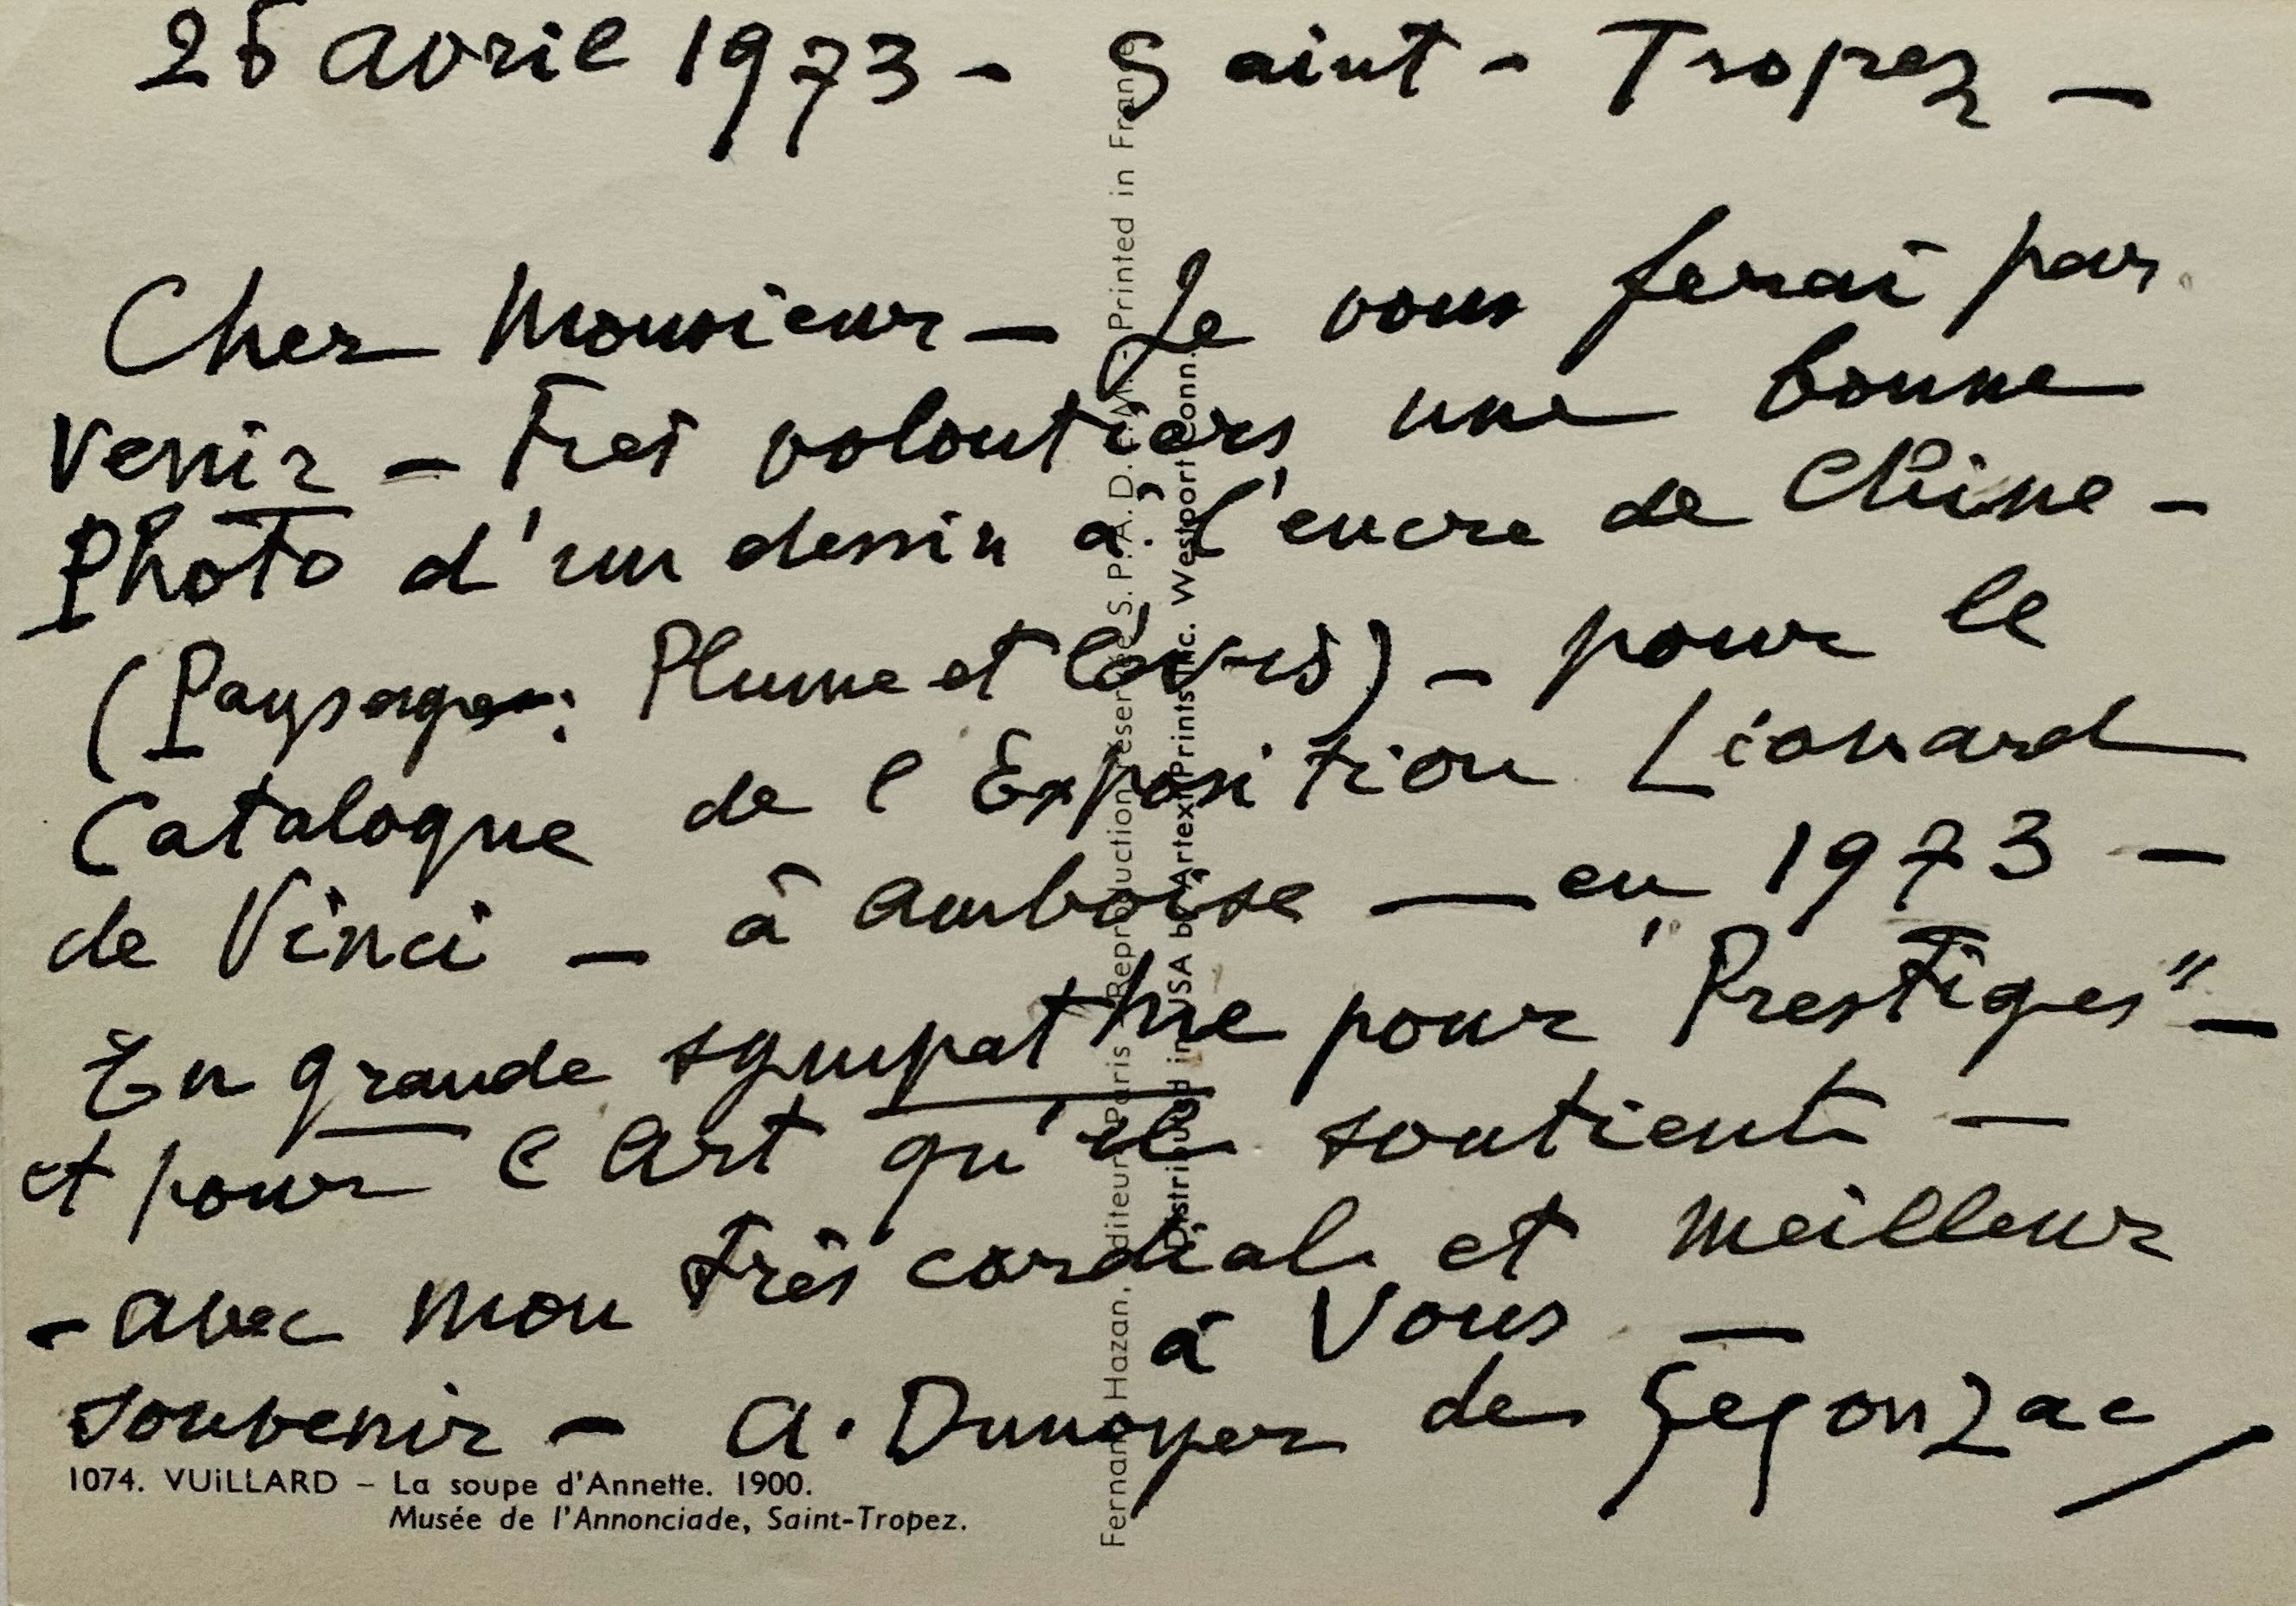 25 avril 1973 - Saint - Tropez -
Cher Monsieur - Je vous ferai par
venir - très volontiers une bonne
Photo d'un dessin à l'encre de Chine -
(Paysage: Plume et lavis) - pour le
Catalogue de l Exposition Léonard
de Vinci - à Amboise - en 1973 -
En grande sympathie pour "Prestiges" -
et pour l Art qu'il soutient -
- avec mon très cordial et meilleur
souvenir - à Vous -
A. Dunoyer de Segonzac
1074. VUiLLARD - La soupe d'Annette. 1900.
Musée de l'Annonciade, Saint-Tropez.
Fernand Hazan, Éditeur, Paris Reproduction réservée S.P.A.D.E.M. - Printed in France
Distributed in USA by Artext Prints Inc. Westport Conn.